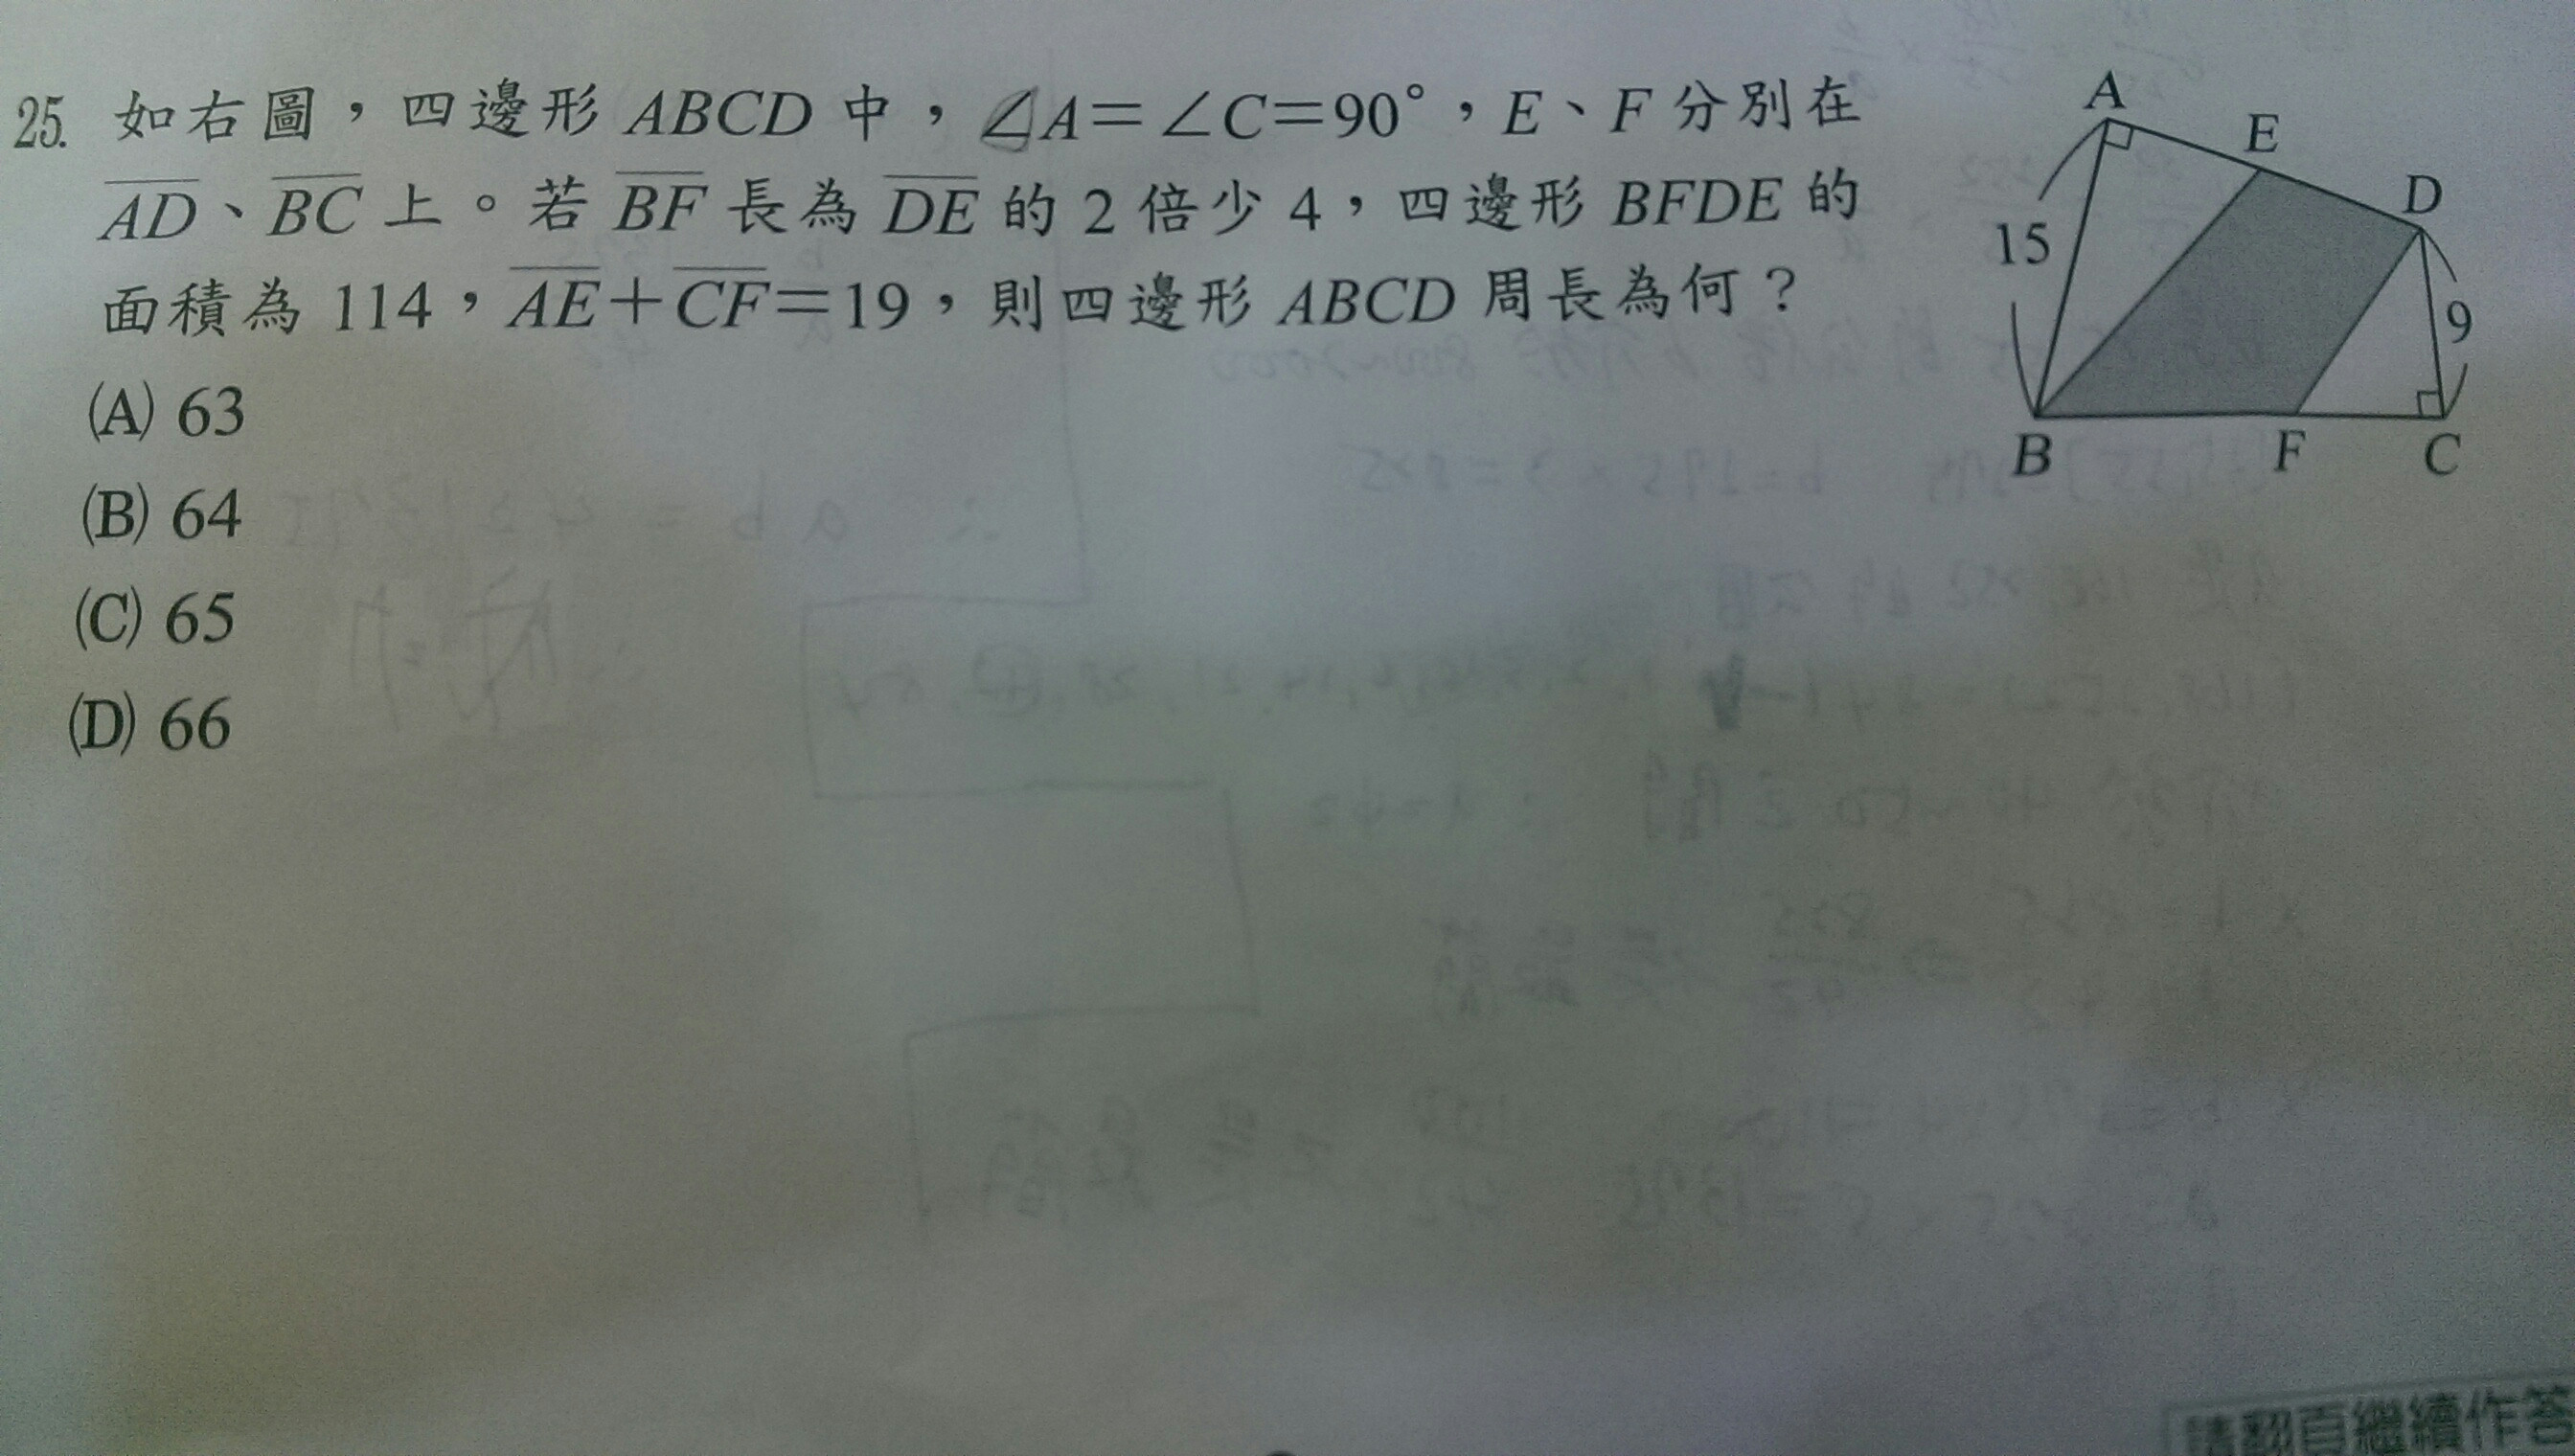 25. 如右圖，四邊形 ABCD 中，∠A＝∠C＝90°，E、F 分別在
AD、BC 上。若 BF 長為 DE 的 2 倍少 4，四邊形 BFDE 的
面積為 114，AE＋CF＝19，則四邊形 ABCD 周長為何？
(A) 63
(B) 64
(C) 65
(D) 66
A
E
D
15
9
B
F
C
請翻頁繼續作答